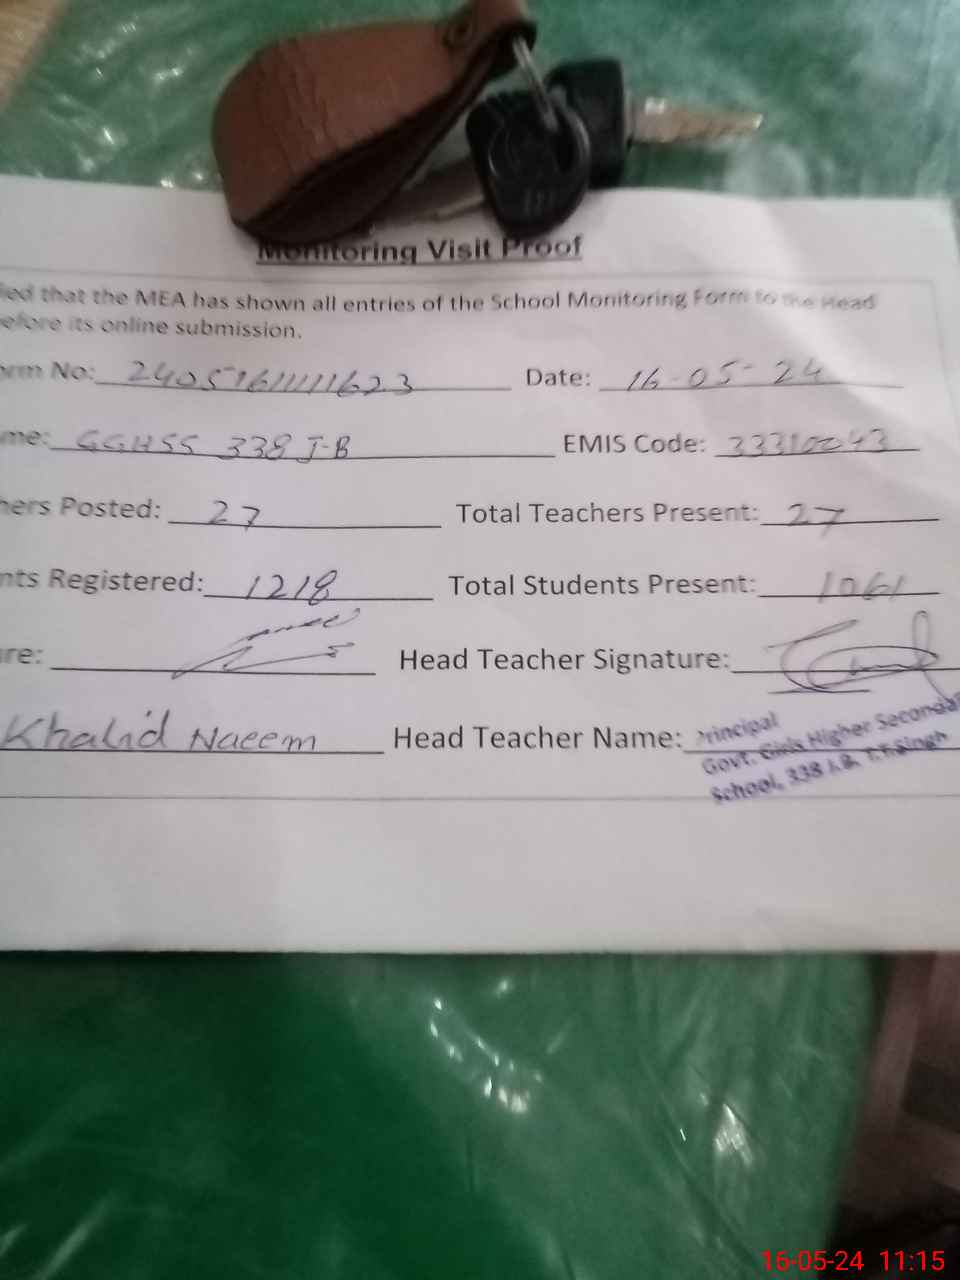 Monitoring Visit Proof
ied that the MEA has shown all entries of the School Monitoring Form to the Head
efore its online submission.
orm No: 2405161111623 Date: 16-05-24
me: GGHSS 338 J-B EMIS Code: 33310043
hers Posted: 27 Total Teachers Present: 27
nts Registered: 1218 Total Students Present: 1061
re: Head Teacher Signature:
Khalid Naeem Head Teacher Name:
Principal
Govt. Girls Higher Secondar
School, 338 J.B. T.T.Singh
16-05-24 11:15